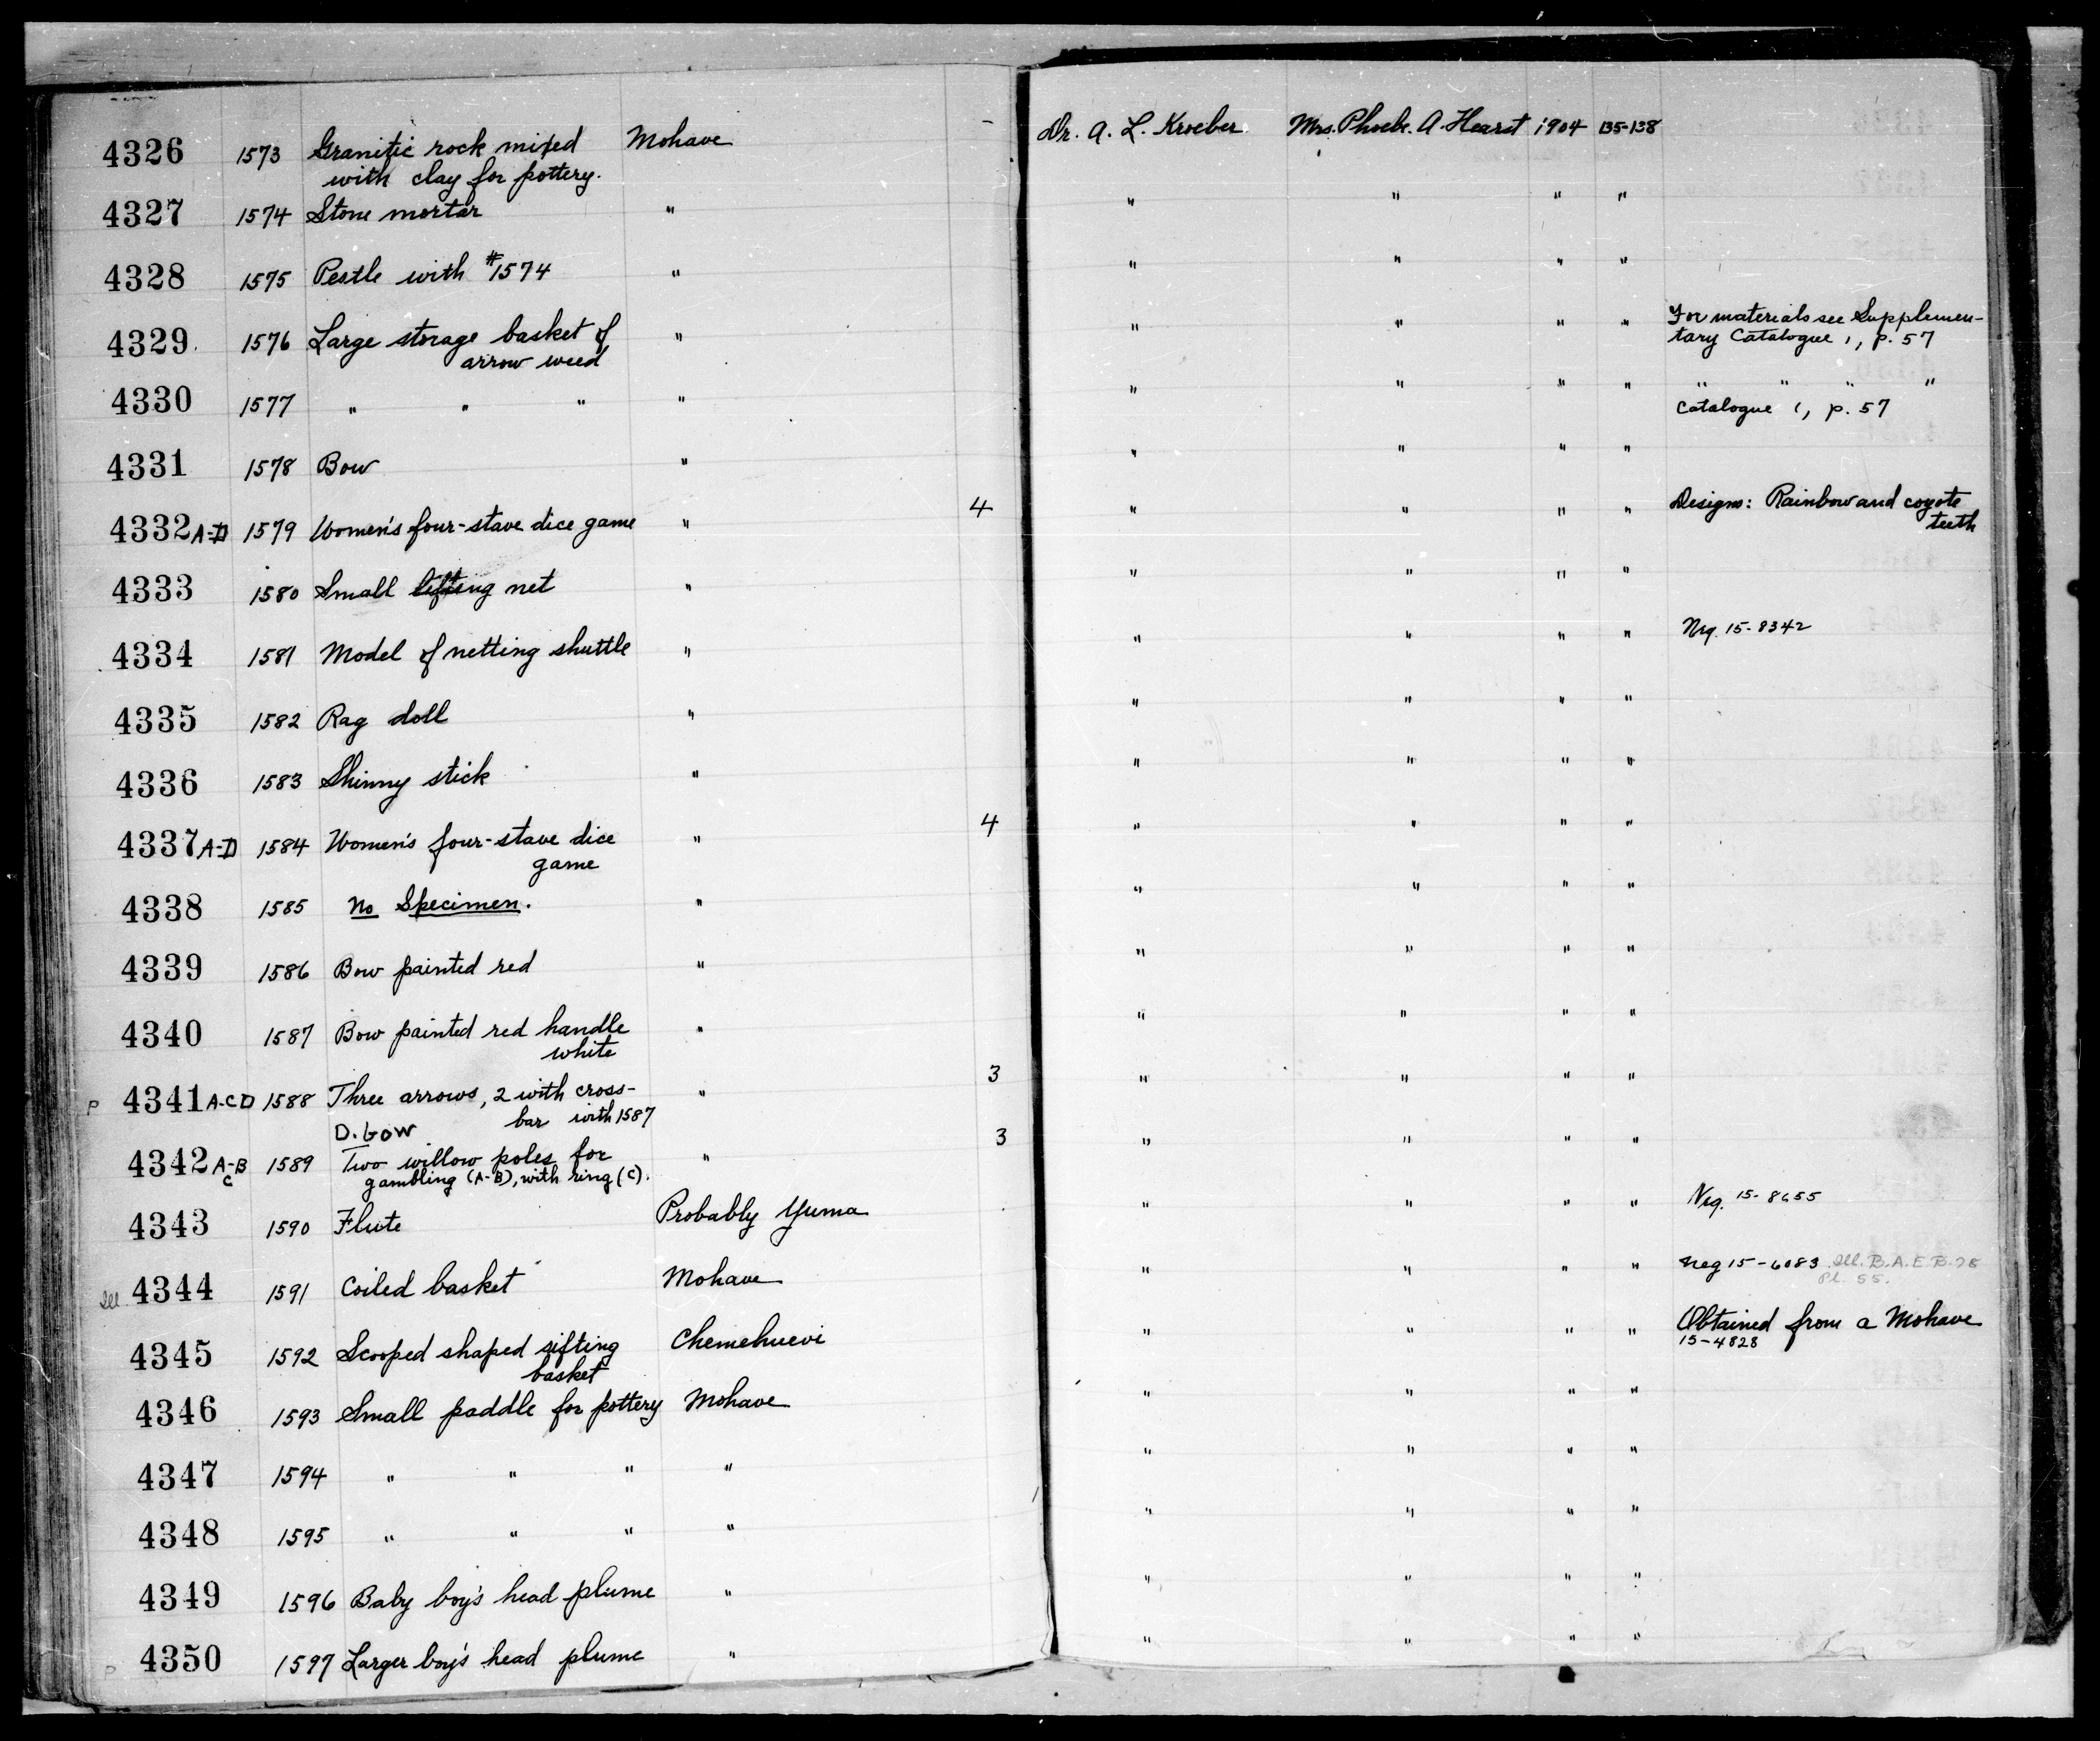 4326 1573 Granitic rock mixed Mohave Dr. A. L. Kroeber Mrs. Phoebe A. Hearst 1904 135-138
with clay for pottery.
4327 1574 Stone mortar " " " " "
4328 1575 Pestle with #1574 " " " " "
4329 1576 Large storage basket of " " " " " For materials see Supplemen-
arrow weed tary Catalogue 1, p. 57
4330 1577 " " " " " " " " " " " "
Catalogue 1, p. 57
4331 1578 Bow " " " " "
4332 A-D 1579 Women's four-stave dice game " 4 " " " " Designs: Rainbow and coyote
teeth
4333 1580 Small lifting net " " " " "
4334 1581 Model of netting shuttle " " " " " Neg. 15-8342
4335 1582 Rag doll " " " " "
4336 1583 Shinny stick " " " " "
4337 A-D 1584 Women's four-stave dice " 4 " " " "
game
4338 1585 No Specimen. " " " " "
4339 1586 Bow painted red " " " " "
4340 1587 Bow painted red handle " " " " "
white
P 4341 A-C D 1588 Three arrows, 2 with cross- " 3 " " " "
bar with 1587
D. bow
4342 A-B 1589 Two willow poles for " 3 " " " "
C gambling (A-B), with ring (C).
4343 1590 Flute Probably Yuma " " " " Neg. 15-8655
Ill. 4344 1591 Coiled basket Mohave " " " " Neg 15-6083 Ill. B.A.E. B. 78
Pl. 55.
4345 1592 Scooped shaped sifting Chemehuevi " " " " Obtained from a Mohave
basket 15-4828
4346 1593 Small paddle for pottery Mohave " " " "
4347 1594 " " " " " " " "
4348 1595 " " " " " " " "
4349 1596 Baby boy's head plume " " " " "
P 4350 1597 Larger boy's head plume " " " " "